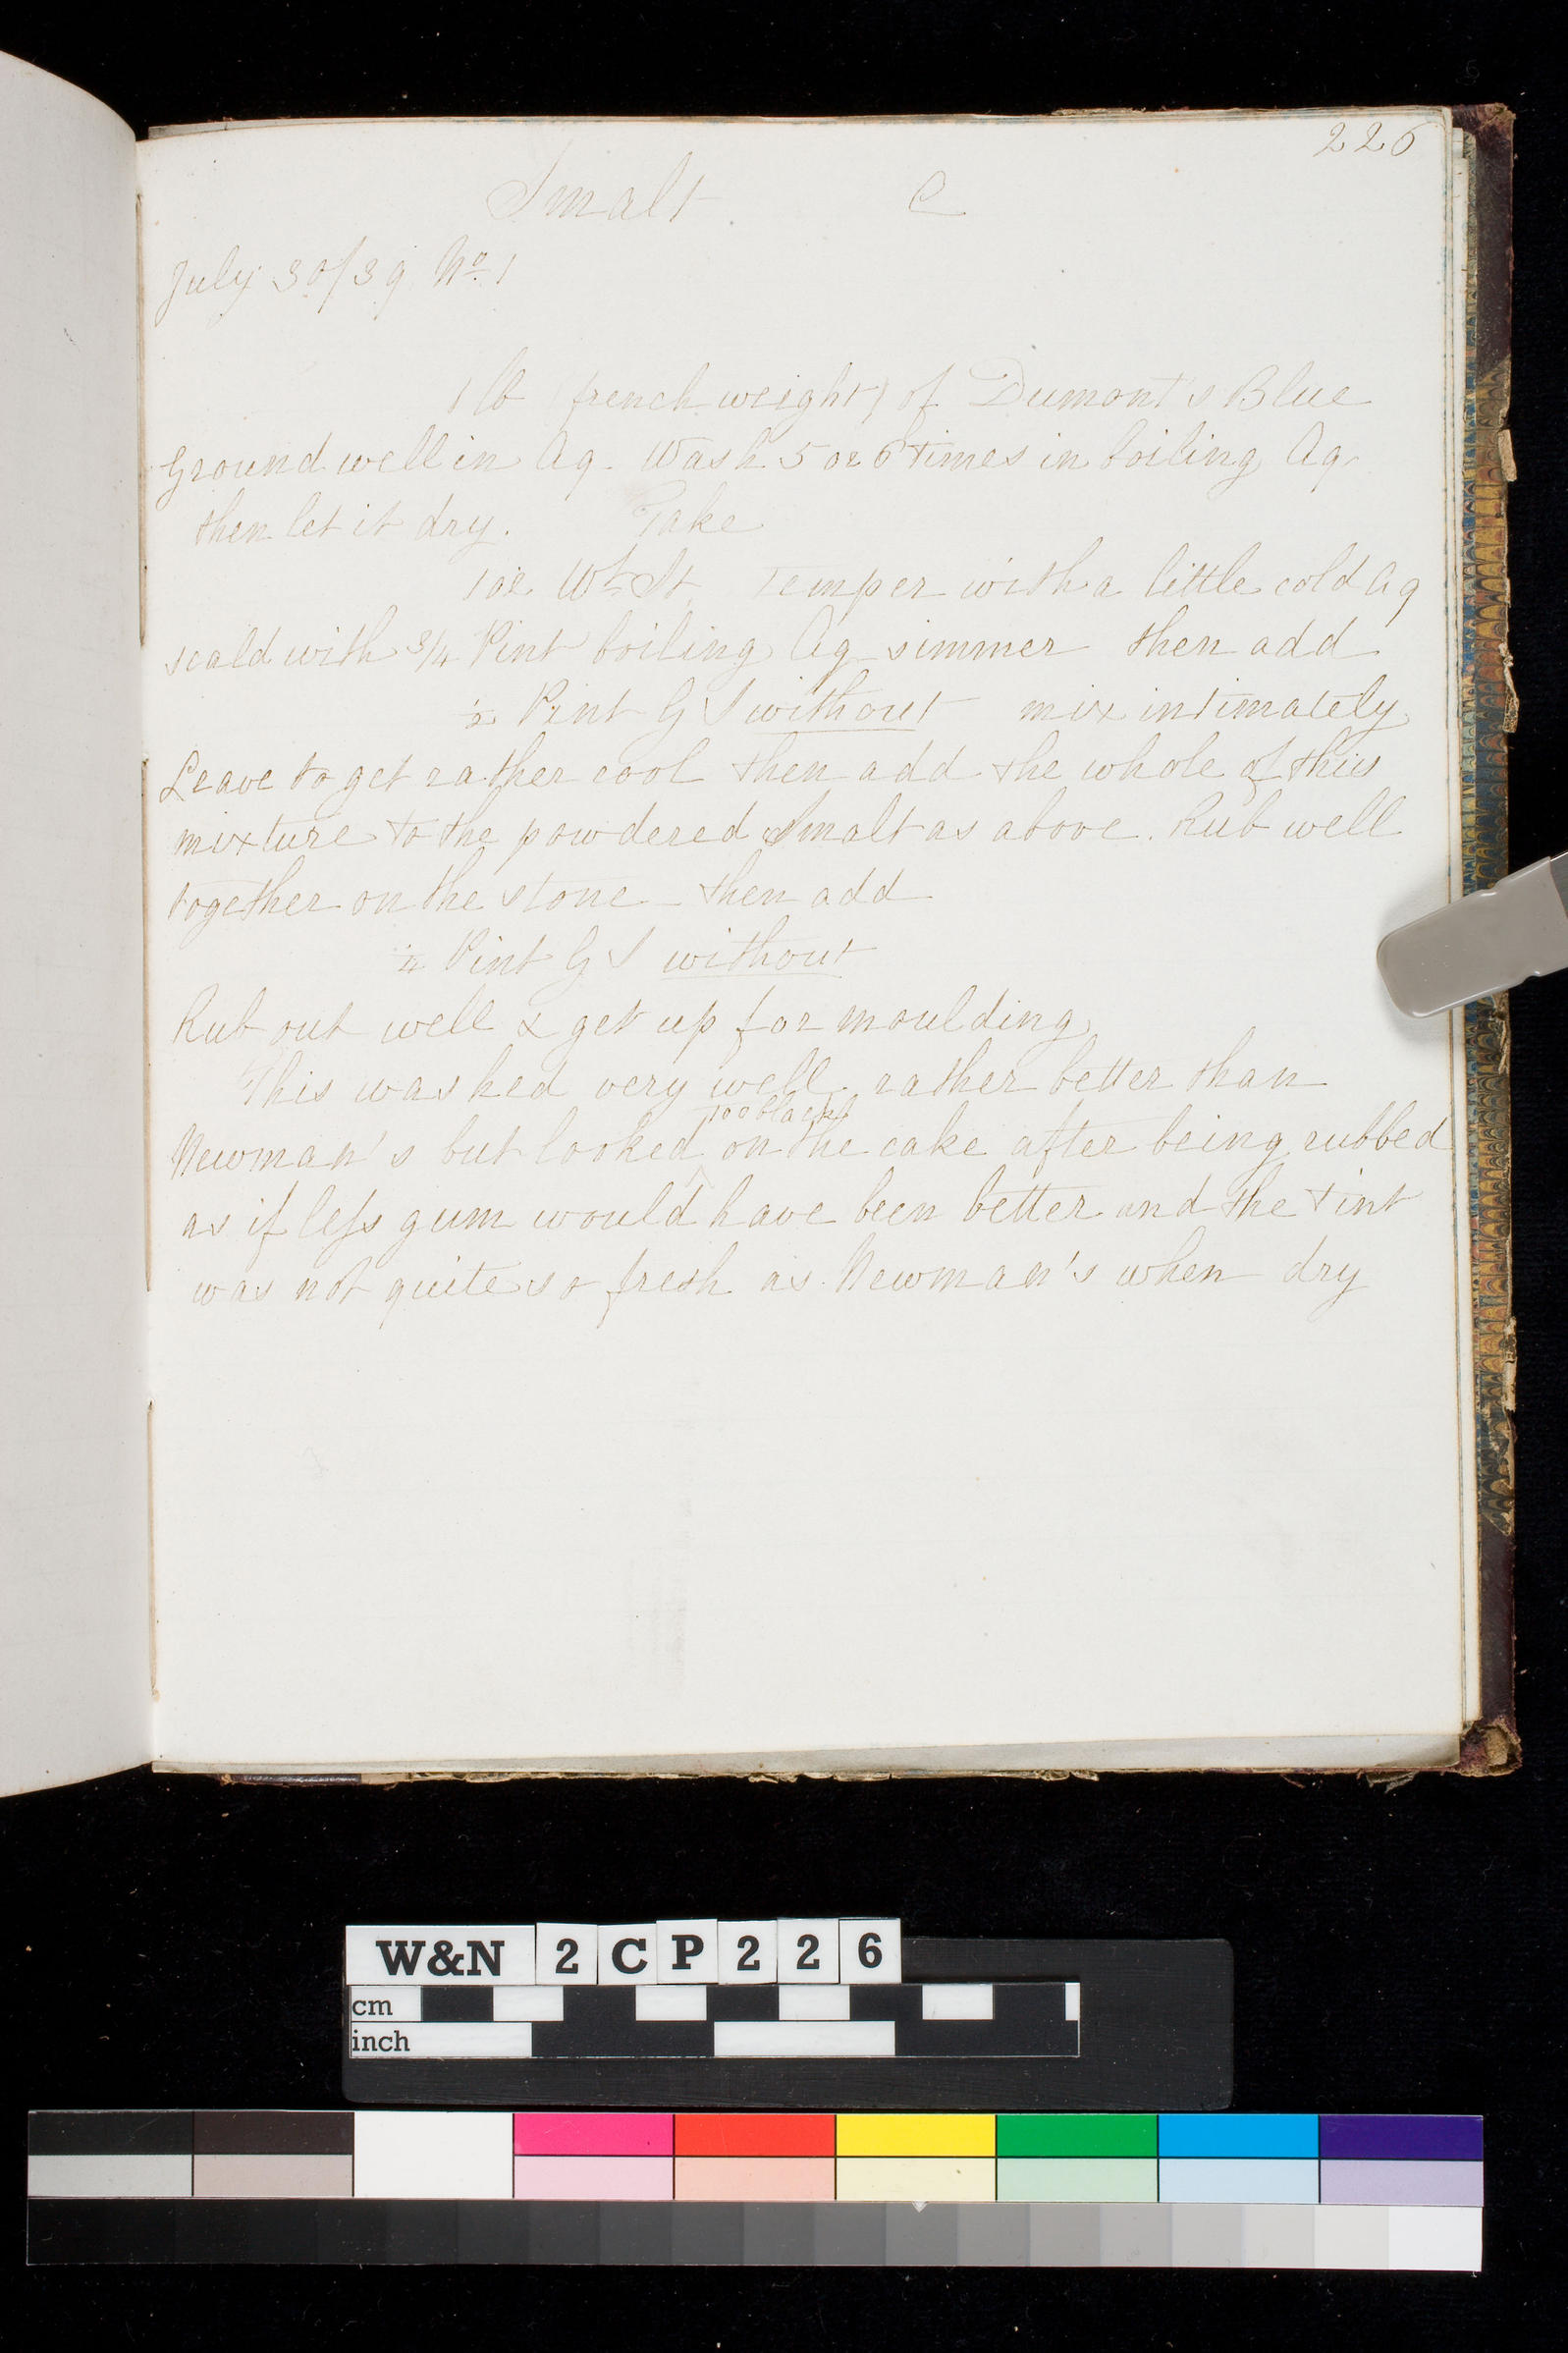 226
Smalt C
July 30/39 No. 1
1 lb (french weight) of Dumont's Blue
Ground well in Aq. Wash 5 or 6 times in boiling Aq.
then let it dry. Take
1 oz Wt. St. Temper with a little cold Aq
scald with 3/4 Pint boiling Aq simmer then add
1/2 Pint G S without mix intimately
Leave to get rather cool then add the whole of this
mixture to the powdered Smalt as above. Rub well
together on the stone - then add
1/4 Pint G S without
Rub out well & get up for moulding
This washed very well, rather better than
too black
Newman's but looked ^ on the cake after being rubbed
as if less gum would have been better and the tint
was not quite so fresh as Newman's when dry
W&N 2 C P 2 2 6
cm
inch